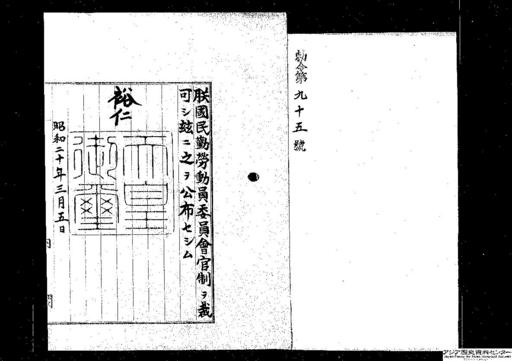 勅令第九十五號
朕國民勤勞動員委員會官制ヲ裁
可シ玆ニ之ヲ公布セシム
裕仁
天皇
御璽
昭和二十年三月五日
内
アジア歴史資料センター